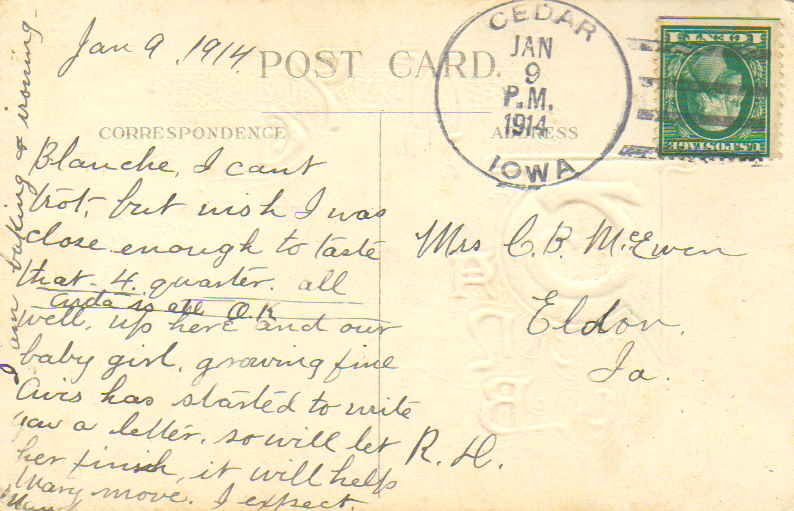 Jan 9, 1914.
POST CARD.
CEDAR
JAN
9
P.M.
1914
IOWA
1 CENT 1
U.S. POSTAGE
CORRESPONDENCE
ADDRESS
Blanche, I cant
trot, but wish I was
close enough to taste
that 4. quarter. all
is all O.K
well, up here and our
baby girl, growing fine
Avis has started to write
you a letter, so will let
her finish, it will help
Mary move. I expect.
I am baking & ironing-
Mrs C.B. McEwen
Eldon.
Ia.
R. H.